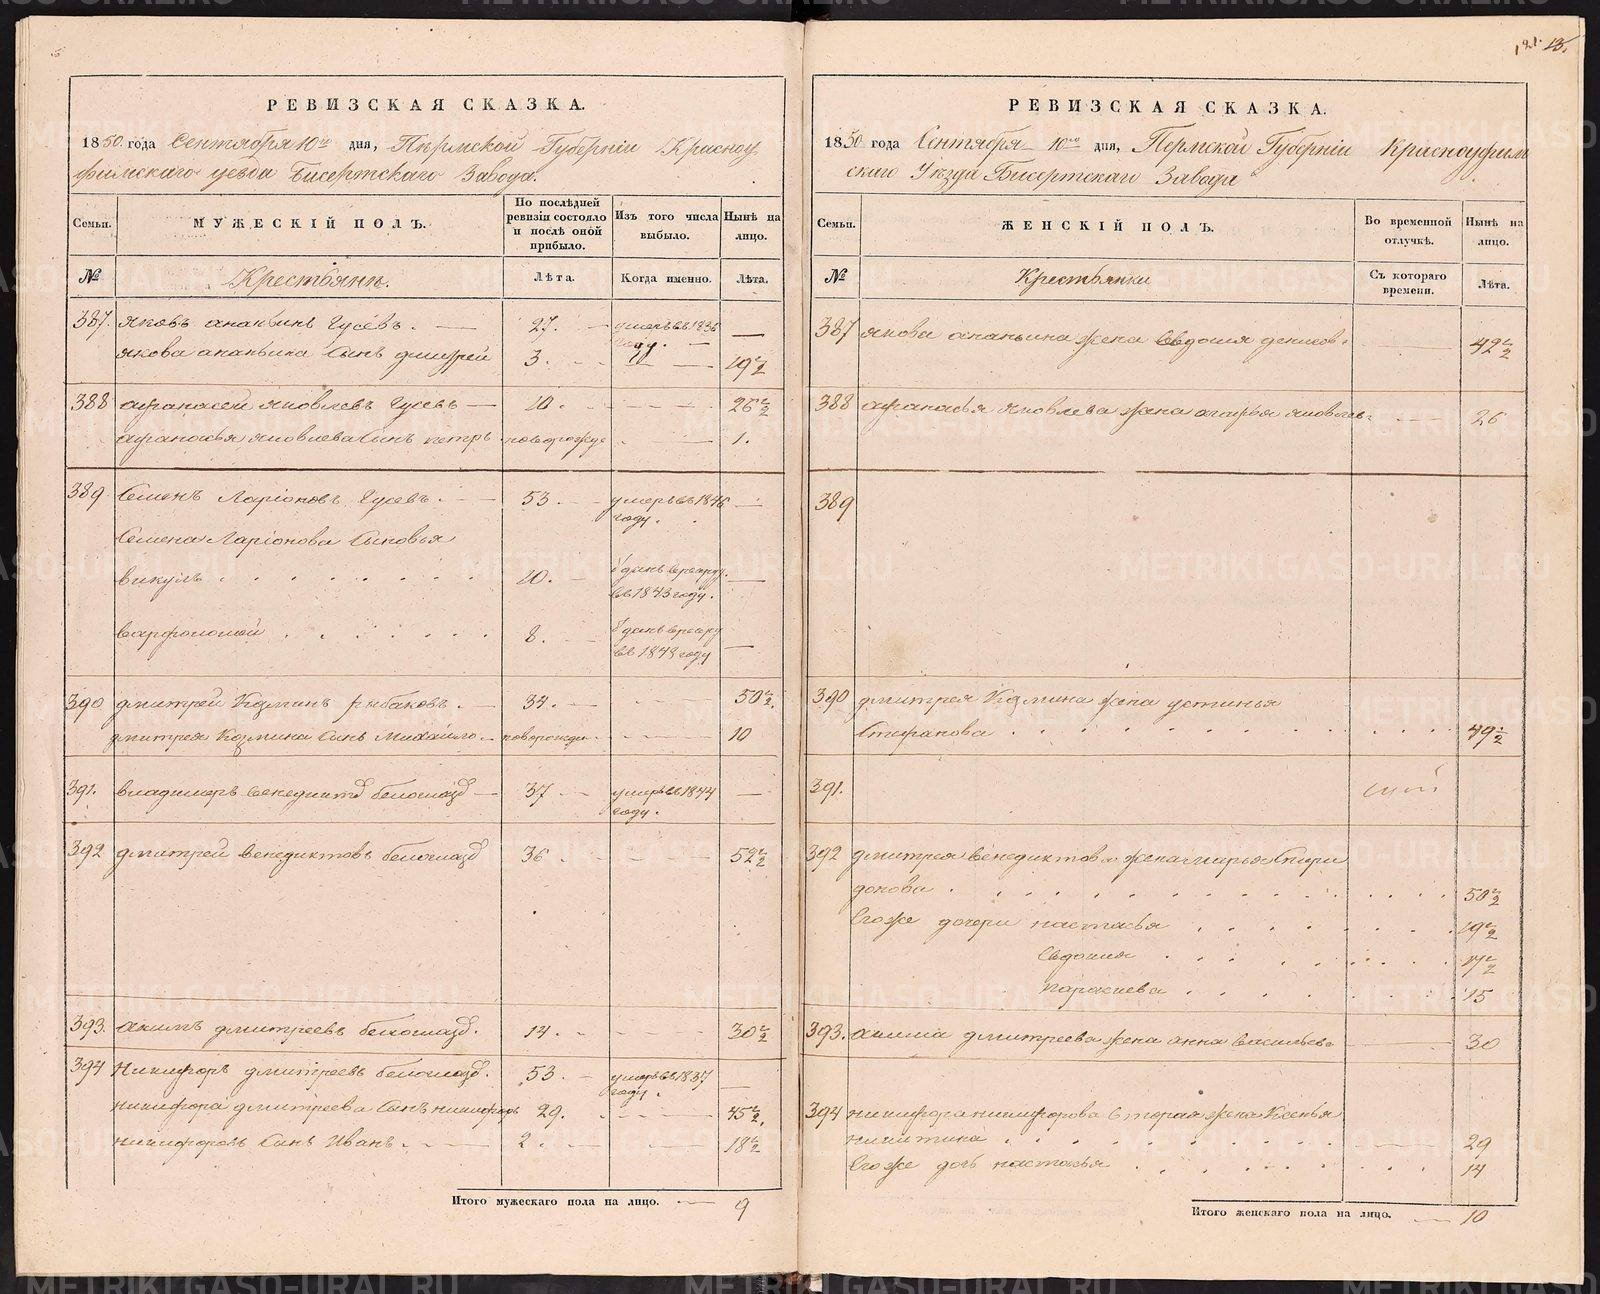 121. 13.
РЕВИЗСКАЯ СКАЗКА.
1850 года Сентября 10го дня, Пермской Губерніи Красноу
фимскаго уезда Бисертскаго Завода.
Семьи.
МУЖЕСКІЙ ПОЛЪ.
По послѣдней ревизіи состояло и послѣ оной прибыло.
Изъ того числа выбыло.
Нынѣ на лицо.
№ Крестьяне. Лѣта. Когда именно. Лѣта.
387. Яковъ ананьинъ Гусевъ. 27. умеръ въ 1836 году. —
Якова ананьина Сынъ дмитрей 3. 19½
388 афанасей Яковлевъ Гусевъ 10. 26½
афанасья Яковлева Сынъ петръ новорожде 1.
389. Семенъ Ларіоновъ Гусевъ. 53. умеръ въ 1846 году. —
Семена Ларіонова Сыновья
викулъ 10. въ 1843 году. —
варфоломей 8. въ 1843 году —
390 дмитрей Козминъ рыбаковъ. 34. 50½.
дмитрея Козмина Сынъ Михайло новорожден. 10
391. владимеръ венедикто белоглазо 37 умеръ въ 1844 году. —
392 дмитрей венедиктовъ белоглазо 36. 52½
393. акимъ дмитреевъ белоглазо. 14. 30½
394 Никифоръ дмитреевъ белоглазо. 53. умеръ въ 1837 году. —
никифора дмитреева Сынъ никифоръ 29. 45½.
никифоровъ Сынъ Иванъ. 2. 18½
Итого мужескаго пола на лицо. 9
РЕВИЗСКАЯ СКАЗКА.
1850 года Сентября 10го дня, Пермской Губерніи Красноуфим
скаго Уѣзда Бисертскаго Завода
Семьи.
ЖЕНСКІЙ ПОЛЪ.
Во временной отлучкѣ.
Нынѣ на лицо.
№ Крестьянки Съ котораго времени. Лѣта.
387 Якова ананьина жена Евдокия денисов. 42½
388 афанасья Яковлева жена агафья яковлев: 26
389
390 дмитрея Козмина жена устинья
Стефанова 49½
391.
392 дмитрея венедиктова жена марья Спири
донова 50½
Егоже дочери настасья 19½
Евдокия 17½
парасковья 15
393. акима дмитреева жена анна васильева 30
394 никифора никифорова вторая жена Ксенья
никитина 29
Егоже дочь настасья 14
Итого женскаго пола на лицо. 10
METRIKI.GASO-URAL.RU